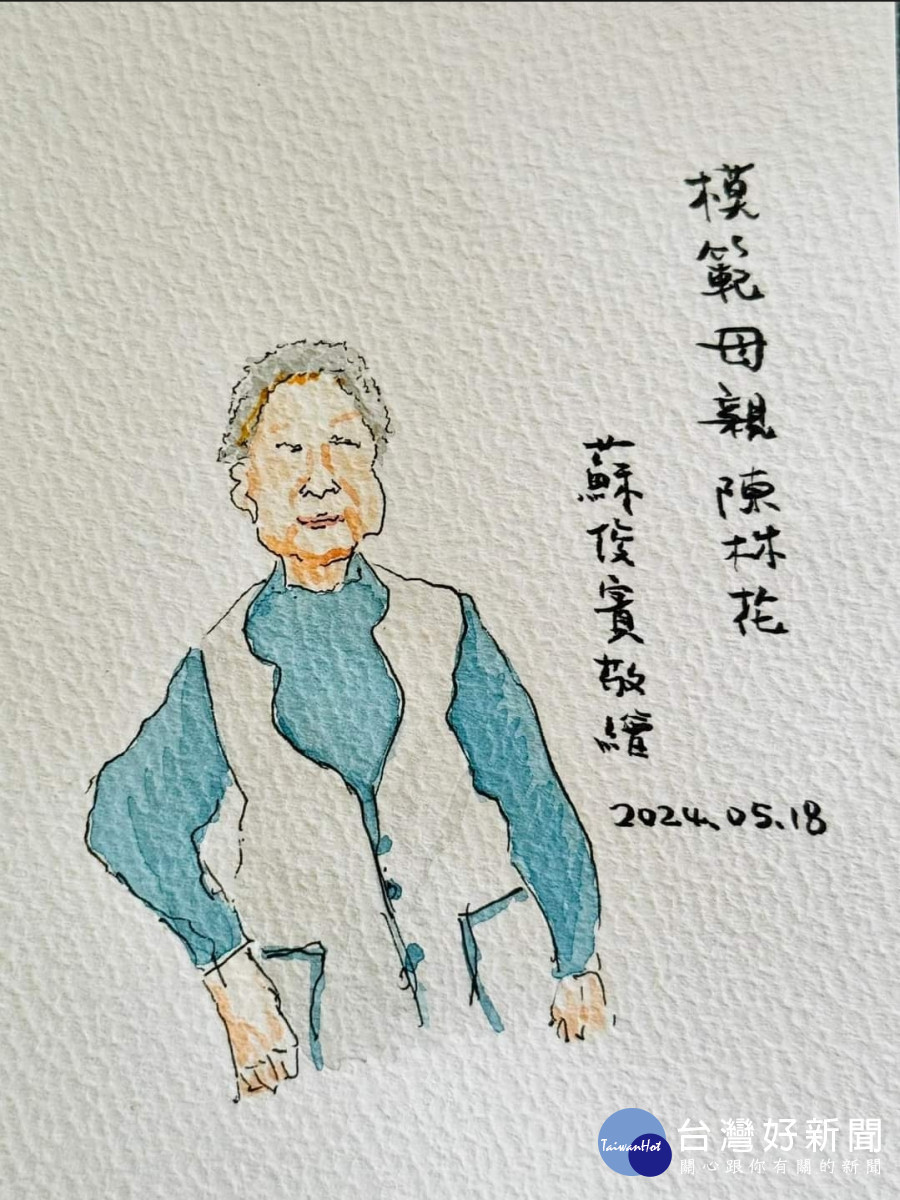 模範母親陳林花
蘇俊賓敬繪
2024.05.18
TaiwanHot
台灣好新聞
關心跟你有關的新聞